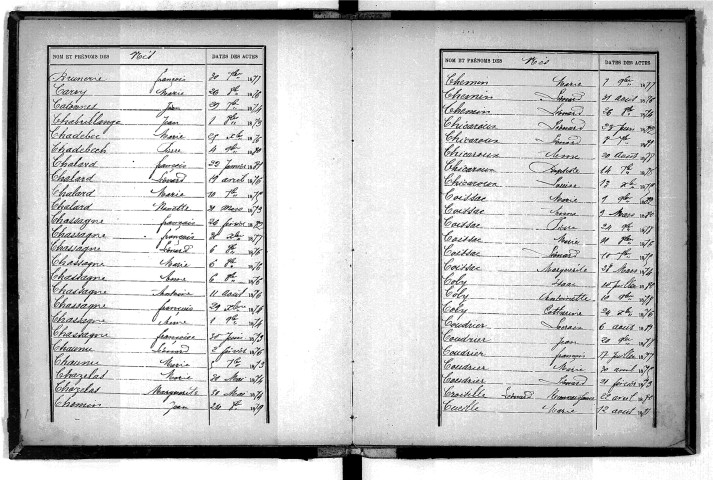 NOM ET PRÉNOMS DES Nés DATES DES ACTES
Brunerie françois 30 7bre 1877
Carry Marie 20 8bre 1876
Calonnes Jean 29 7bre 1874
Chabrillanges Jean 1 8bre 1873
Chadebec Marie 25 Xbre 1876
Chadebech Pierre 4 9bre 1880
Chalard françois 22 Janvier 1881
Chalard Léonard 19 avril 1876
Chalard Marie 10 7bre 1875
Chalard Nanette 31 Mars 1873
Chassagne françois 20 février 1882
Chassagne françois 31 Xbre 1877
Chassagne Léonard 6 8bre 1876
Chassagne Marie 6 8bre 1876
Chassagne Marie 6 8bre 1876
Chassagne Antoine 11 août 1876
Chassagne françois 29 Xbre 1878
Chassagne Anne 1 9bre 1874
Chassagne françoise 30 Juin 1873
Chaume Léonard 2 février 1876
Chaume Marie 5 7bre 1873
Chazelas Marie 20 Mai 1874
Chazelas Marguerite 20 Mai 1874
Chemin Jean 24 8bre 1879
NOM ET PRÉNOMS DES Nés DATES DES ACTES
Chemin Marie 7 9bre 1877
Chemin Léonard 31 août 1876
Chemin Léonard 26 8bre 1874
Chicaroux Léonard 28 Juin 1882
Chicaroux Léonard
Chicaroux Anne 20 août 1878
Chicaroux Baptiste 14 7bre 1875
Chicaroux Louise 17 Xbre 1875
Coissac Marie 9 9bre 1882
Coissac Anne 9 Mars 1880
Coissac Pierre 24 9bre 1878
Coissac Marie 10 9bre 1876
Coissac Léonard 10 7bre 1875
Coissac Marguerite 28 Mars 1874
Coly Isaac 10 juillet 1880
Coly Antoinette 10 9bre 1877
Coly Catherine 24 Xbre 1876
Coudrier 6 août 1881
Coudrier Jean 20 9bre 1878
Coudrier françois 17 Juillet 1877
Coudrier Marie 30 août 1875
Coudrier Léonard 21 février 1873
Léonard 22 avril 1875
Cueille Marie 12 août 1875